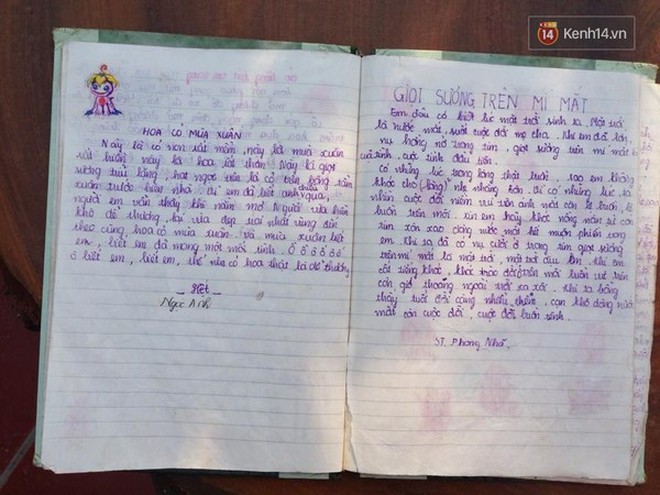 14 Kenh14.vn
HOA CỎ MÙA XUÂN
Này lá cỏ non vất mềm, này lá mùa xuân
rất hiền này là hoa lết thơm. Này là giọt
sương trôi lăng, hạt ngọc trên lá cỏ trên bông trầm
xuân trước hiên nhà. đi em đã biết anh chiều qua,
người em vẫn thấy khi nằm mơ Người vừa hiền
khô dễ thương, lại vừa đẹp trai nhất vùng đến
theo cùng hoa cỏ mùa xuân. Và mùa xuân biết
em, biết em đã mong một mối tình. Ô ô ô ô ô ô
ô biết em, biết em, thế nên cỏ hoa thật là dễ thương
Hết
Ngọc Anh
GIỌT SƯƠNG TRÊN MÍ MẮT
Em đâu có biết lúc mặt trời sinh ra. Mặt trời
là nước mắt, suốt cuộc đời mẹ cha. Khi em đã lớn
nụ hồng nở trong tim, giọt sương trên mí mắt là
cuộc tình, cuộc tình đầu tiên.
Có những lúc trong lòng thật buồn, sao em không
khóc cho lòng nhẹ nhàng hơn. đi có những lúc ta
nhìn cuộc đời niềm vui trên ánh mắt còn là buồn, là
buồn trên môi. xin em hãy khóc nồng nàn để con
tim xôn xao dòng nước mắt hết muộn phiền trong
em. Khi ta đã có nụ cười ở trong tim giọt sương
trên mí mắt là mặt trời, mặt trời đầu tiên. Khi em
cất tiếng khóc, khóc trào đời trên môi luôn vẽ trên
cơn gió thoáng ngoài trời xa xôi. Khi ta bỗng
thấy tuổi đời cộng nhiều thêm, cạn khô dòng nước
mắt còn cuộc đời, cuộc đời buồn tênh.
ST. Phong Nhã.